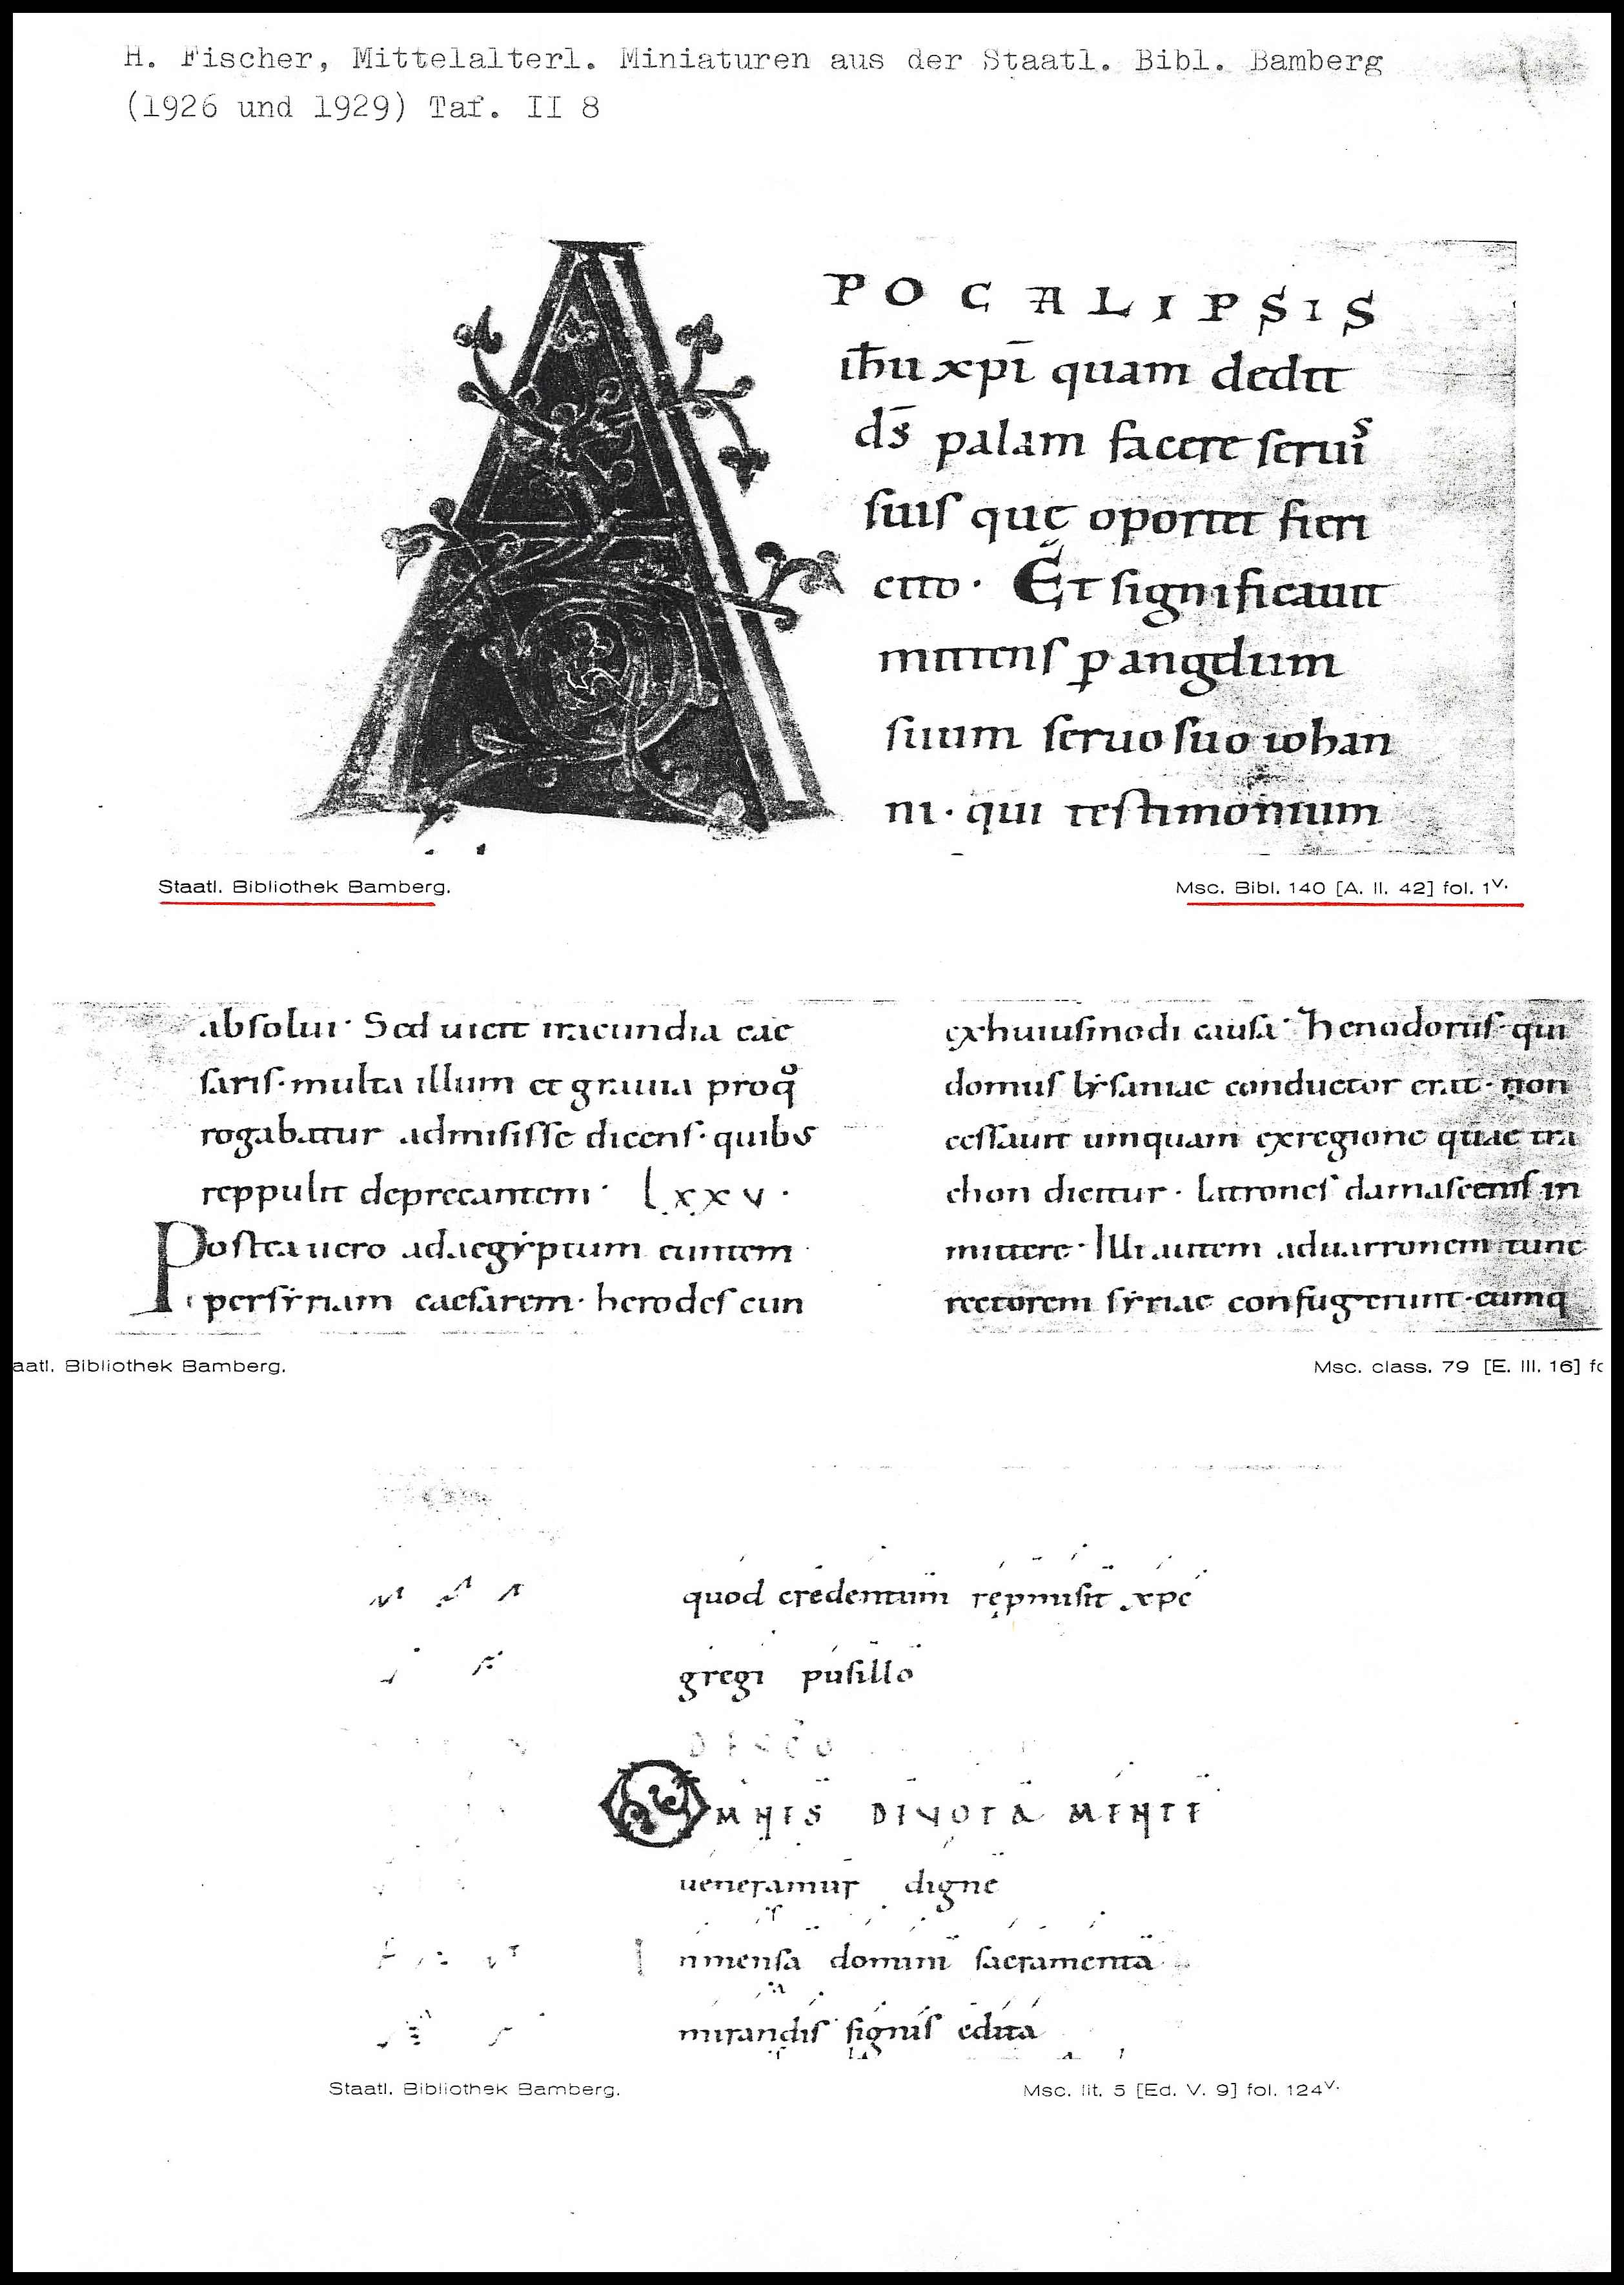 H. Fischer, Mittelalterl. Miniaturen aus der Staatl. Bibl. Bamberg
(1926 und 1929) Taf. II 8
APOCALIPSIS
ih̄u xpī quam dedit
ds̄ palam facere seruiˢ
suis quę oportet fieri
cito · Et significauit
mittens ꝑ angelum
suum seruo suo iohan
ni · qui testimonium
Staatl. Bibliothek Bamberg.
Msc. Bibl. 140 [A. II. 42] fol. 1ᵛ·
absolui · Sed uicit iracundia cae
saris · multa illum et grauia proq̊
rogabatur admisisse dicens · quibs
reppulit deprecantem · lxxv ·
Postea uero adaegyptum euntem
persyriam caesarem · herodes cun
exhuiusmodi causa · henodorus · qui
domus lysaniae conductor erat · non
cessauit umquam exregione quae tra
chon dicitur · Latrones damascenis in
mittere · Illi autem aduarronem tunc
rectorem syriae confugerunt · cumq
aatl. Bibliothek Bamberg.
Msc. class. 79 [E. III. 16] fo
quod credentum repmisit xpc
gregi pusillo
OMNIS DEVOTA MENTE
ueneramur digne
Inmensa domini sacramenta
mirandis signis edita
Staatl. Bibliothek Bamberg.
Msc. lit. 5 [Ed. V. 9] fol. 124ᵛ·